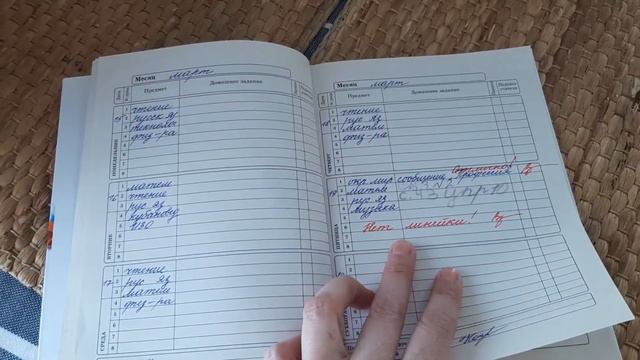 Месяц март
Предмет
Домашнее задание
ПОНЕДЕЛЬНИК
15
1 чтение
2 русск яз
3 технолог
4 физ-ра
5
6
7
8
ВТОРНИК
16
1 матем
2 чтение
3 рус яз
4 кубановед
5 ИЗО
6
7
8
СРЕДА
17
1 чтение
2 рус яз
3 матем
4 физ-ра
5
6
7
8
Месяц март
Предмет
Домашнее задание
ЧЕТВЕРГ
18
1 чтение
2 рус яз
3 матем
4 физ-ра
5
6
7
8
ПЯТНИЦА
19
1 окр мир сообщение, профессия
2 матем
3 рус яз
4 музыка
Нет линейки!
СУББОТА